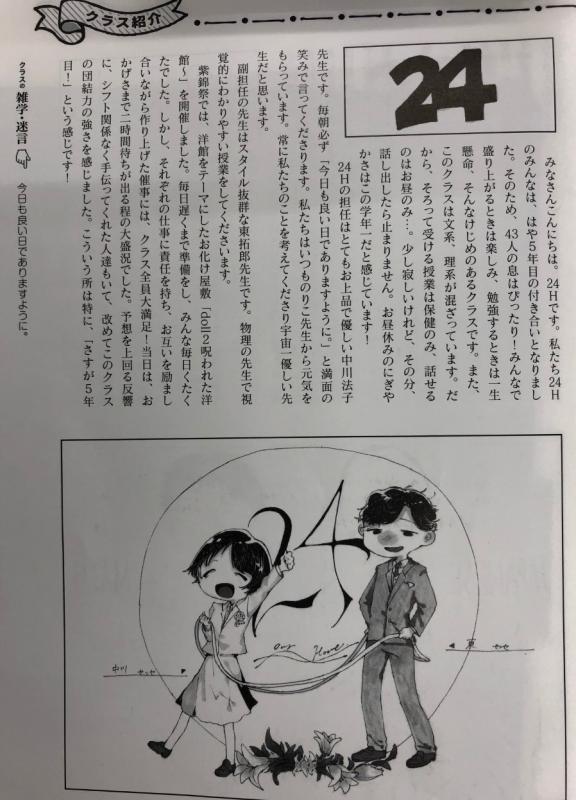 クラス紹介
24
みなさんこんにちは。24Hです。私たち24H
のみんなは、はや5年目の付き合いとなりまし
た。そのため、43人の息はぴったり!みんなで
盛り上がるときは楽しみ、勉強するときは一生
懸命、そんなけじめのあるクラスです。また、
このクラスは文系、理系が混ざっています。だ
から、そろって受ける授業は保健のみ、話せる
のはお昼のみ…。少し寂しいけれど、その分、
話し出したら止まりません。お昼休みのにぎや
かさはこの学年一だと感じています!
24Hの担任はとてもお上品で優しい中川法子
先生です。毎朝必ず「今日も良い日でありますように。」と満面の
笑みで言ってくださります。私たちはいつものりこ先生から元気を
もらっています。常に私たちのことを考えてくださり宇宙一優しい先
生だと思います。
副担任の先生はスタイル抜群な東拓郎先生です。物理の先生で視
覚的にわかりやすい授業をしてくださいます。
紫錦祭では、洋館をテーマにしたお化け屋敷「doll2呪われた洋
館~」を開催しました。毎日遅くまで準備をし、みんな毎日くたく
たでした。しかし、それぞれの仕事に責任を持ち、お互いを励まし
合いながら作り上げた催事には、クラス全員大満足!当日は、お
かげさまで二時間待ちが出る程の大盛況でした。予想を上回る反響
に、シフト関係なく手伝ってくれた人達もいて、改めてこのクラス
の団結力の強さを感じました。こういう所は特に、「さすが5年
目!」という感じです!
クラスの雑学・迷言
今日も良い日でありますように。
24
Our Home
東 センセ
中川 センセ